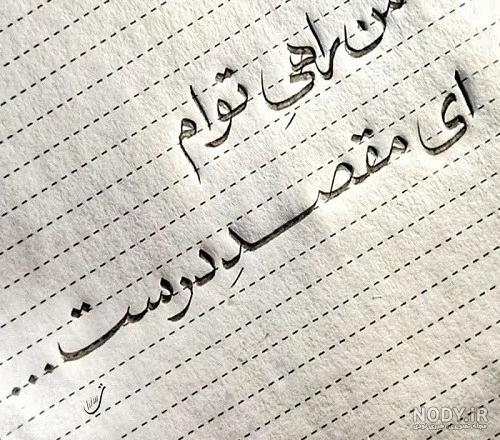 من راهیِ توام
ای مقصدِ درست...
NODY.IR